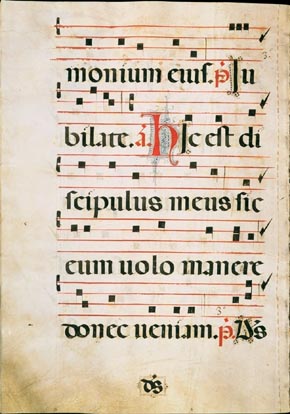 monium eius. p̄ Iu
bilate. a̅ Hic est di
scipulus meus sic
eum uolo manere
donec ueniam. p̄ Ds
ds